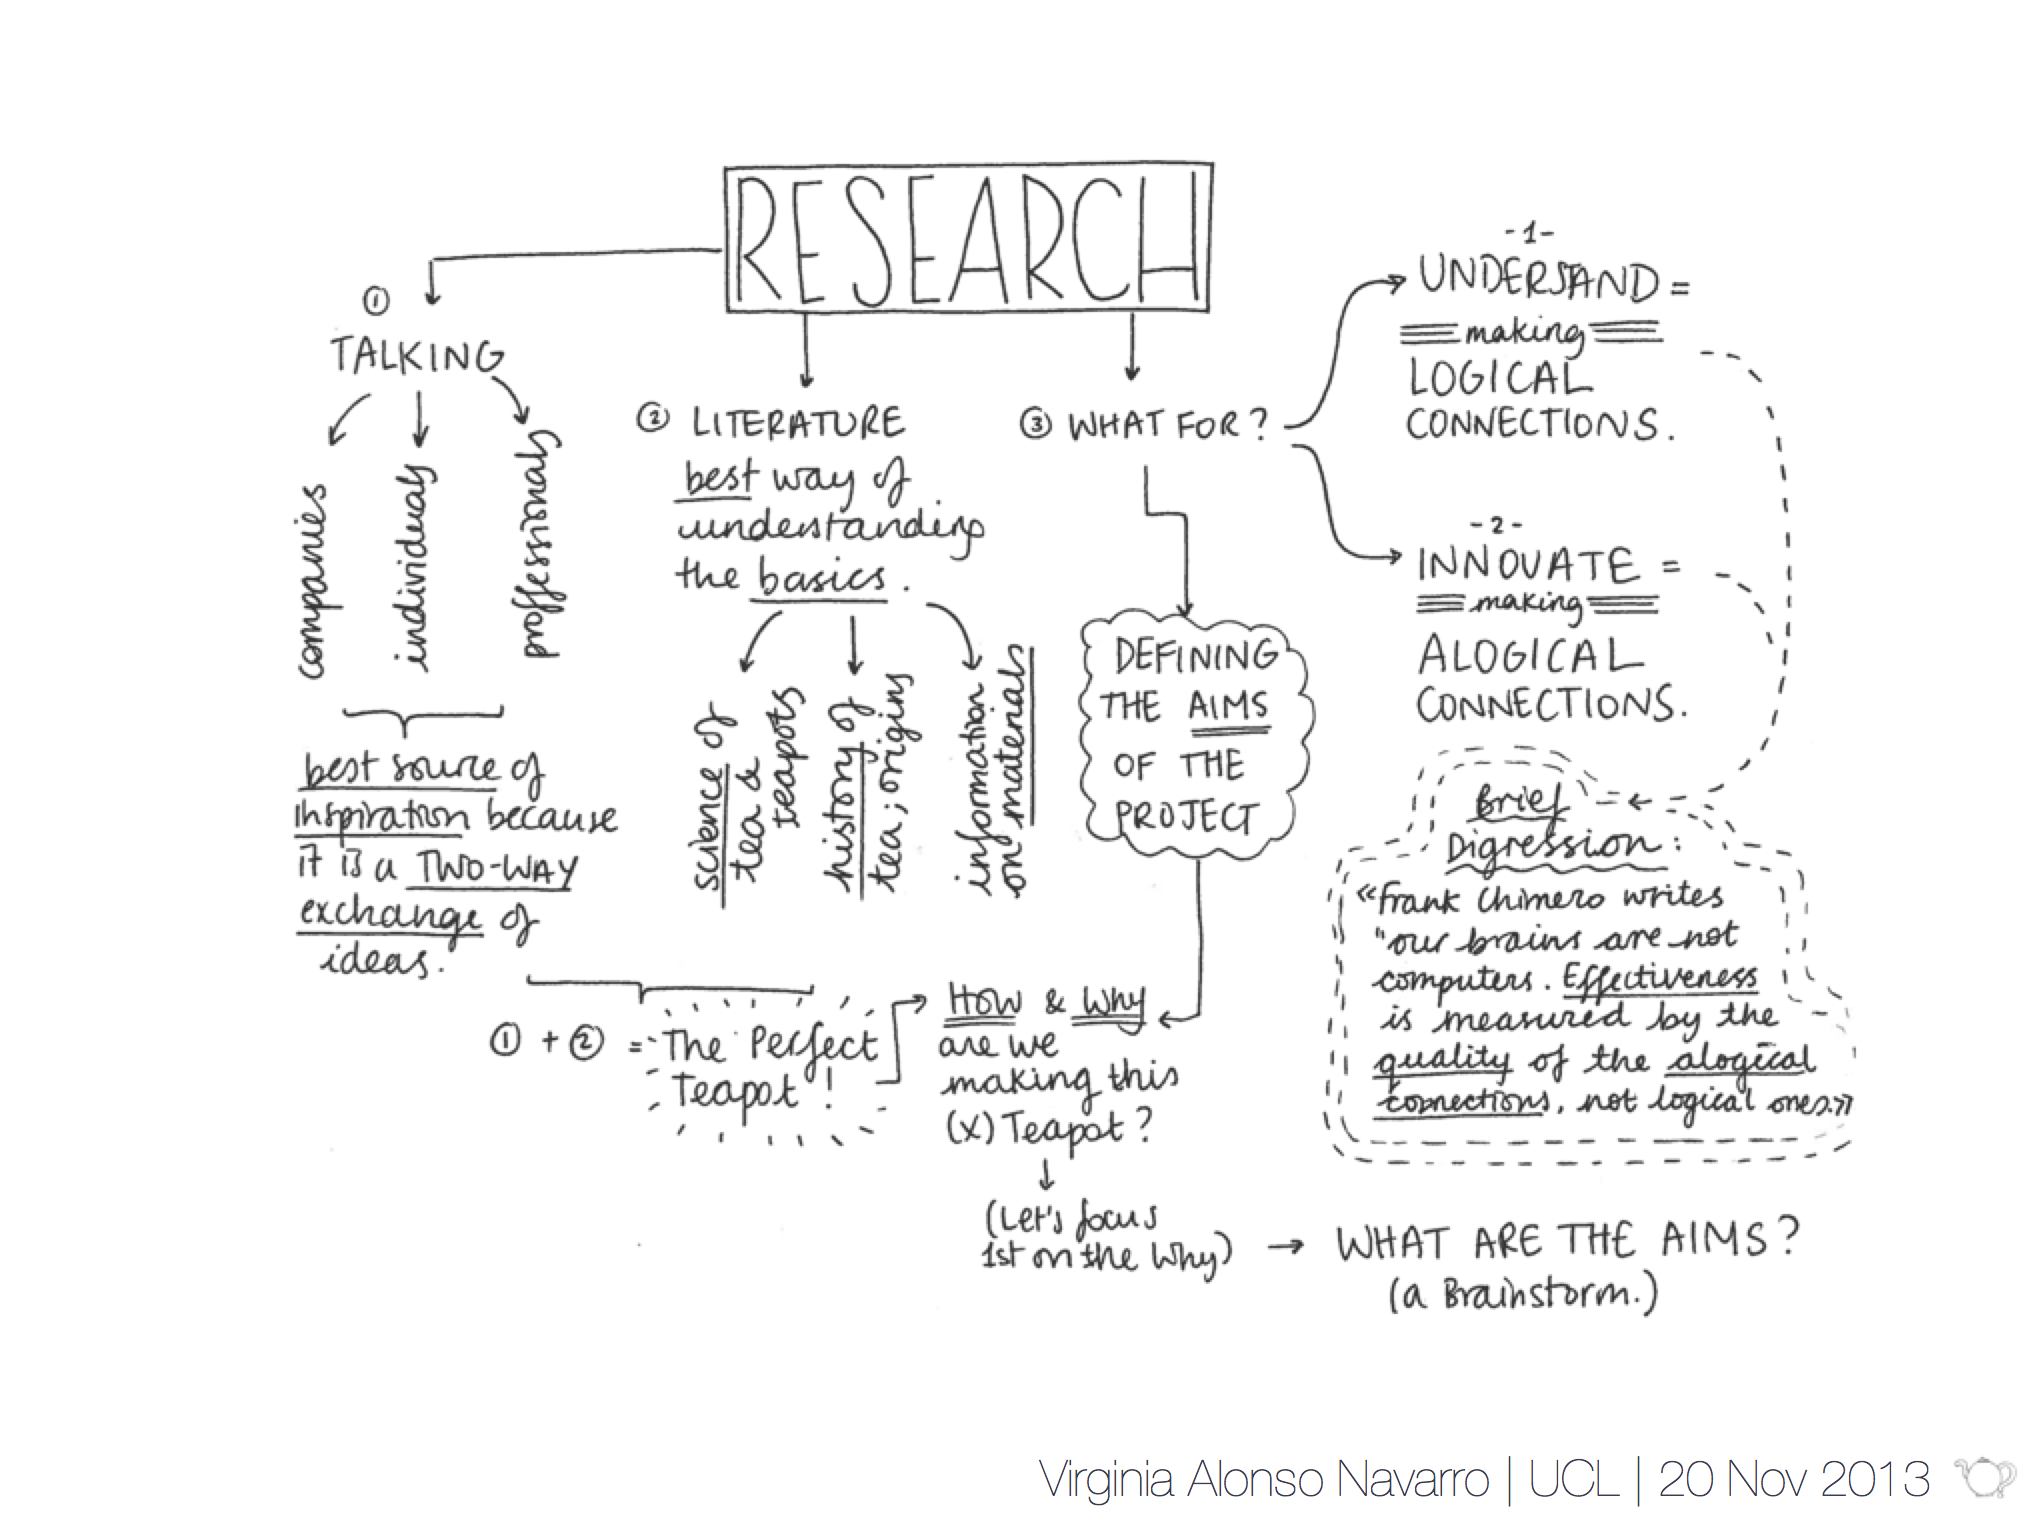 RESEARCH
①
TALKING
companies
individuals
proffessionals
best source of
inspiration because
it is a TWO-WAY
exchange of
ideas.
② LITERATURE
best way of
understanding
the basics.
science of
tea &
teapots
history of
tea; origins
information
on materials
① + ② = The Perfect
Teapot!
③ WHAT FOR?
-1-
UNDERSTAND =
making
LOGICAL
CONNECTIONS.
-2-
INNOVATE =
making
ALOGICAL
CONNECTIONS.
Brief
Digression:
«Frank Chimero writes
"our brains are not
computers. Effectiveness
is measured by the
quality of the alogical
connections, not logical ones.»
DEFINING
THE AIMS
OF THE
PROJECT
How & Why
are we
making this
(x) Teapot?
(Let's focus
1st on the Why)
WHAT ARE THE AIMS?
(a Brainstorm.)
Virginia Alonso Navarro | UCL | 20 Nov 2013